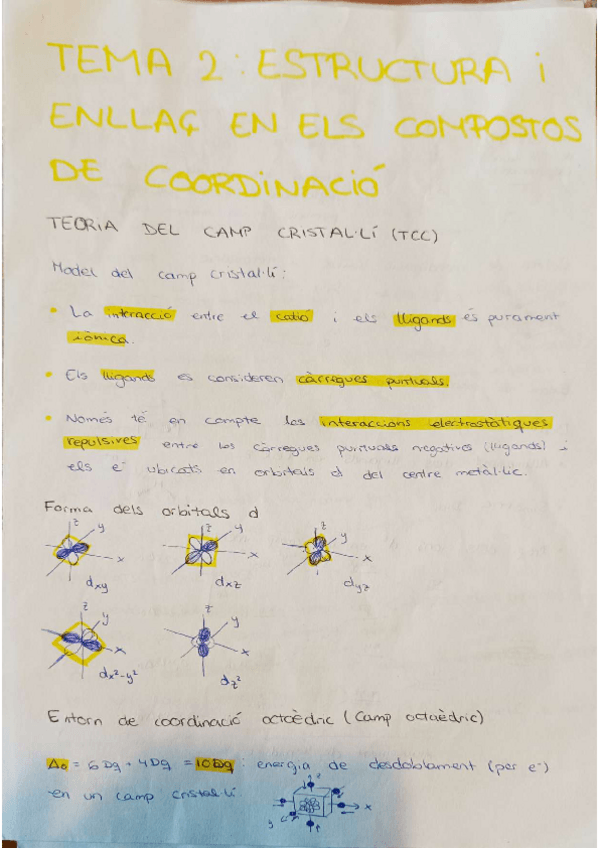 TEMA 2: ESTRUCTURA i
ENLLAÇ EN ELS COMPOSTOS
DE COORDINACIÓ
TEORIA DEL CAMP CRISTAL·LÍ (TCC)
Model del camp cristal·lí:
• La interacció entre el catió i els lligands és purament
iònica.
• Els lligands es consideren càrregues puntuals.
• Només té en compte les interaccions electrostàtiques
repulsives entre les càrregues puntuals negatives (lligands) i
els e⁻ ubicats en orbitals d del centre metàl·lic.
Forma dels orbitals d
z y x dxy
z y x dxz
z y x dyz
z y x dx²-y²
z y x dz²
Entorn de coordinació octaèdric (Camp octaèdric)
Δo = 6Dq + 4Dq = 10Dq : energia de desdoblament (per e⁻)
en un camp cristal·lí
x
y